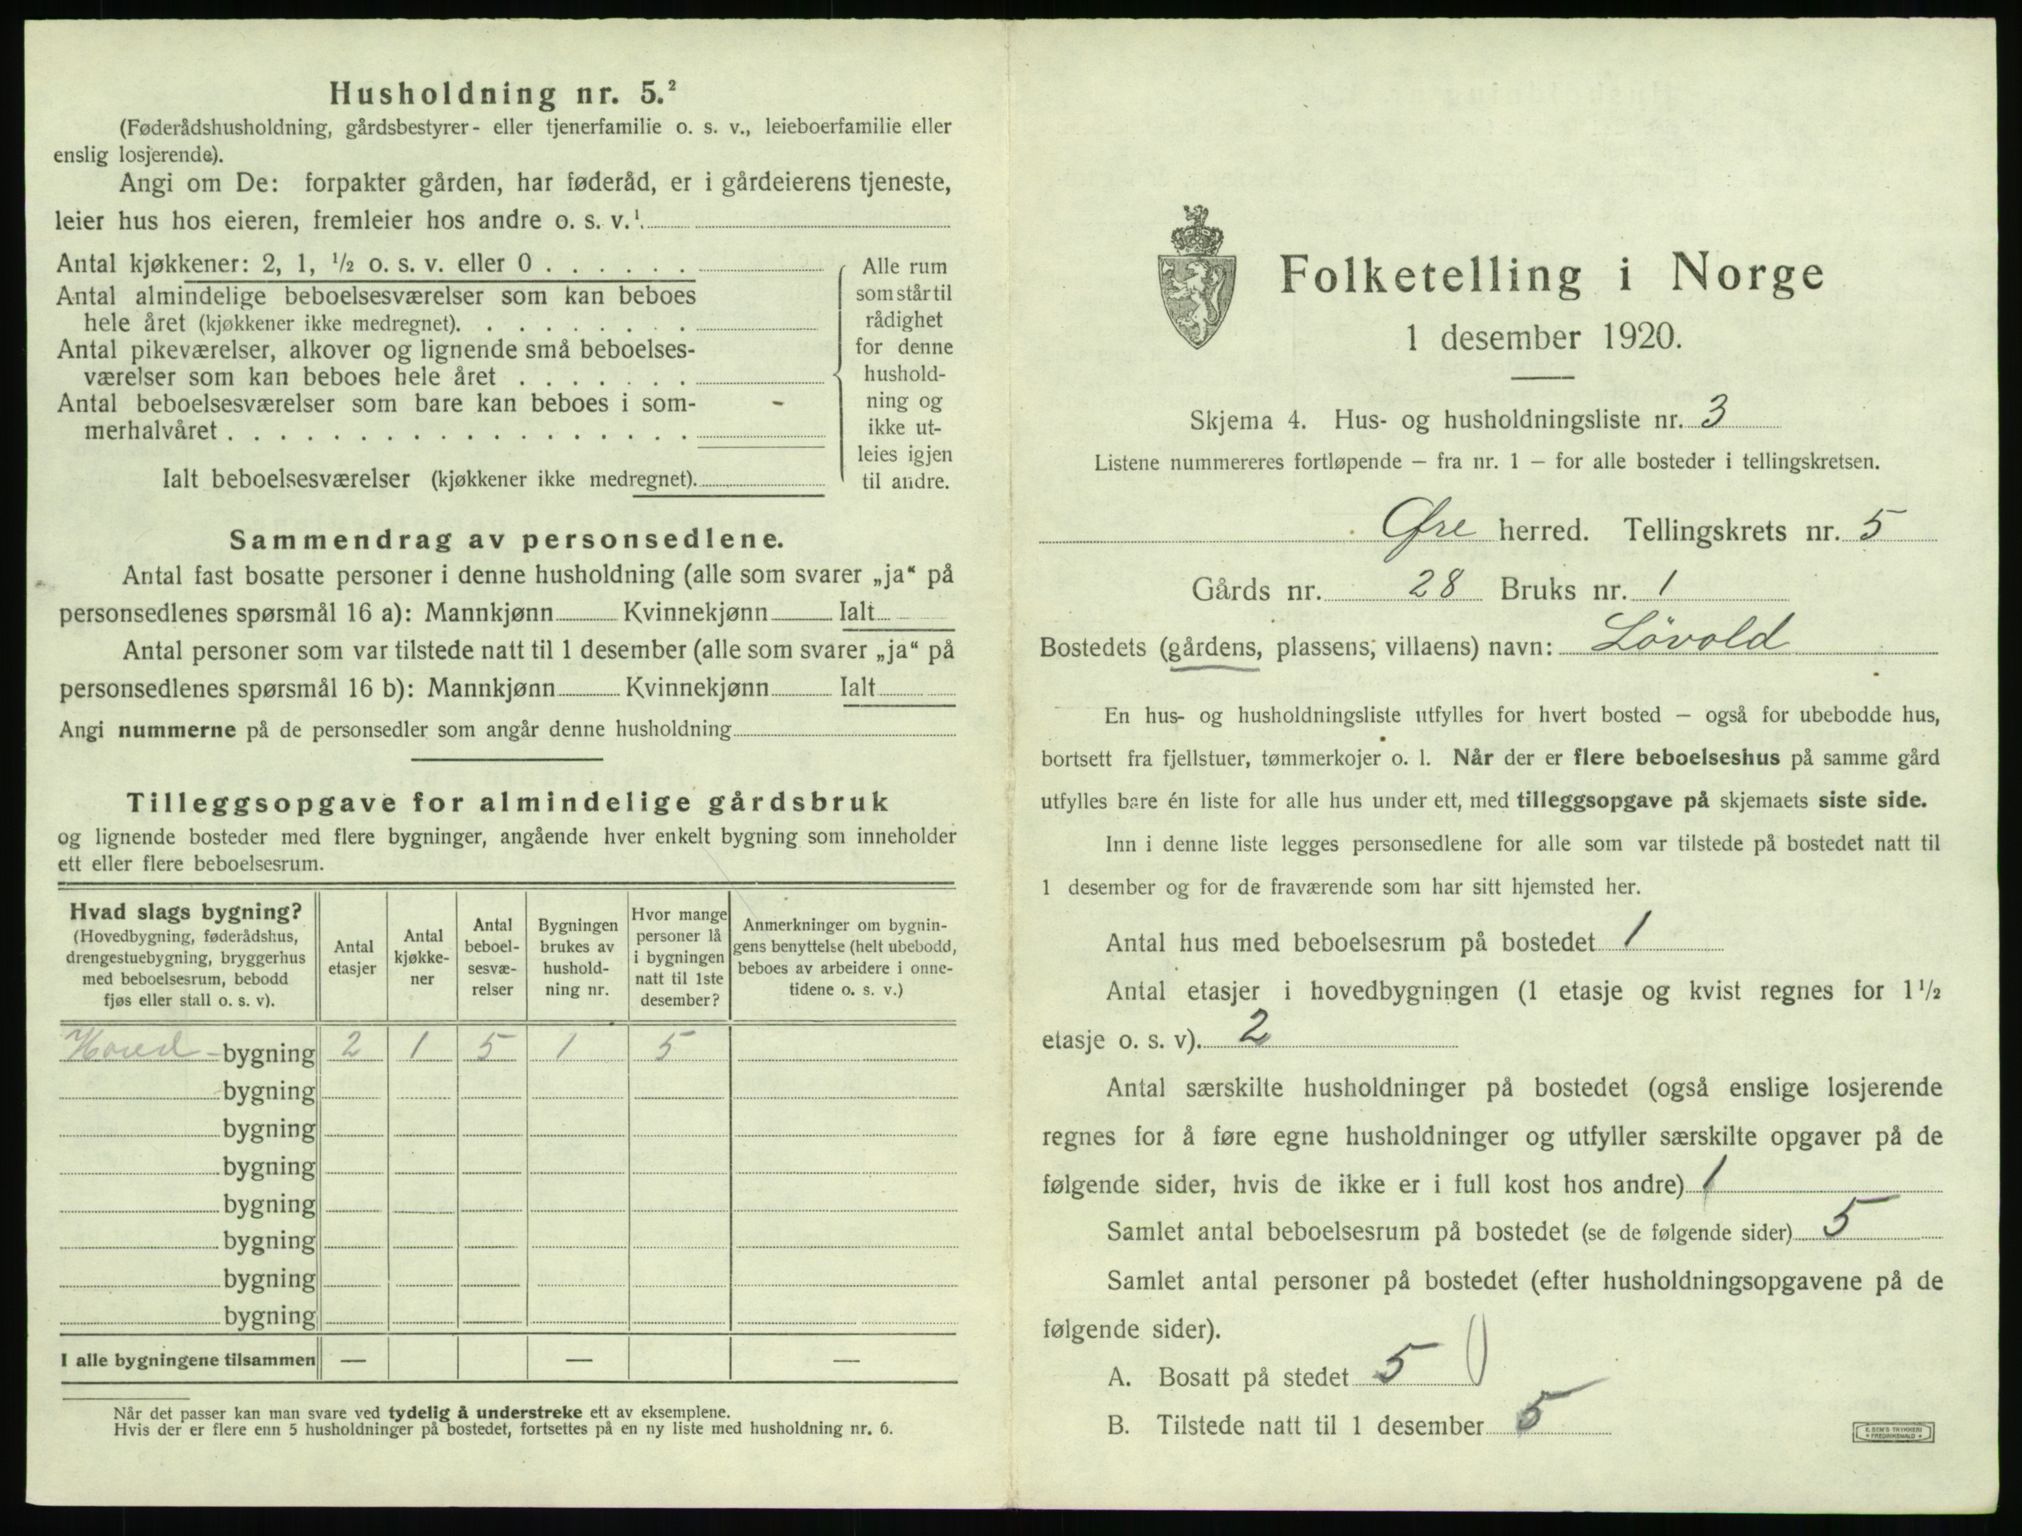 Husholdning nr. 5.²
(Føderådshusholdning, gårdsbestyrer- eller tjenerfamilie o. s. v., leieboerfamilie eller
enslig losjerende).
Angi om De: forpakter gården, har føderåd, er i gårdeierens tjeneste,
leier hus hos eieren, fremleier hos andre o. s. v.¹
Antal kjøkkener: 2, 1, ½ o. s. v. eller 0 . . . . . .
Antal almindelige beboelsesværelser som kan beboes
hele året (kjøkkener ikke medregnet). . . . . . . . .
Antal pikeværelser, alkover og lignende små beboelses-
værelser som kan beboes hele året . . . . . . .
Antal beboelsesværelser som bare kan beboes i som-
merhalvåret . . . . . . . . . . . . . . . . . .
Ialt beboelsesværelser (kjøkkener ikke medregnet).
Alle rum
som står til
rådighet
for denne
hushold-
ning og
ikke ut-
leies igjen
til andre.
Sammendrag av personsedlene.
Antal fast bosatte personer i denne husholdning (alle som svarer „ja“ på
personsedlenes spørsmål 16 a): Mannkjønn Kvinnekjønn Ialt
Antal personer som var tilstede natt til 1 desember (alle som svarer „ja“ på
personsedlenes spørsmål 16 b): Mannkjønn Kvinnekjønn Ialt
Angi nummerne på de personsedler som angår denne husholdning
Tilleggsopgave for almindelige gårdsbruk
og lignende bosteder med flere bygninger, angående hver enkelt bygning som inneholder
ett eller flere beboelsesrum.
Hvad slags bygning?
(Hovedbygning, føderådshus,
drengestuebygning, bryggerhus
med beboelsesrum, bebodd
fjøs eller stall o. s. v).
Antal
etasjer
Antal
kjøkke-
ner
Antal
beboel-
sesvæ-
relser
Bygningen
brukes av
hushold-
ning nr.
Hvor mange
personer lå
i bygningen
natt til 1ste
desember?
Anmerkninger om bygnin-
gens benyttelse (helt ubebodd,
beboes av arbeidere i onne-
tidene o. s. v.)
Hoved-bygning 2 1 5 1 5
bygning
bygning
bygning
bygning
bygning
bygning
bygning
I alle bygningene tilsammen — — —
Når det passer kan man svare ved tydelig å understreke ett av eksemplene.
Hvis der er flere enn 5 husholdninger på bostedet, fortsettes på en ny liste med husholdning nr. 6.
Folketelling i Norge
1 desember 1920.
Skjema 4. Hus- og husholdningsliste nr. 3
Listene nummereres fortløpende – fra nr. 1 – for alle bosteder i tellingskretsen.
Øre herred. Tellingskrets nr. 5
Gårds nr. 28 Bruks nr. 1
Bostedets (gårdens, plassens, villaens) navn: Lövold
En hus- og husholdningsliste utfylles for hvert bosted – også for ubebodde hus,
bortsett fra fjellstuer, tømmerkojer o. l. Når der er flere beboelseshus på samme gård
utfylles bare én liste for alle hus under ett, med tilleggsopgave på skjemaets siste side.
Inn i denne liste legges personsedlene for alle som var tilstede på bostedet natt til
1 desember og for de fraværende som har sitt hjemsted her.
Antal hus med beboelsesrum på bostedet 1
Antal etasjer i hovedbygningen (1 etasje og kvist regnes for 1½
etasje o. s. v). 2
Antal særskilte husholdninger på bostedet (også enslige losjerende
regnes for å føre egne husholdninger og utfyller særskilte opgaver på de
følgende sider, hvis de ikke er i full kost hos andre) 1
Samlet antal beboelsesrum på bostedet (se de følgende sider) 5
Samlet antal personer på bostedet (efter husholdningsopgavene på de
følgende sider).
A. Bosatt på stedet 5
B. Tilstede natt til 1 desember 5
E. SEM'S TRYKKERI
FREDRIKSHALD